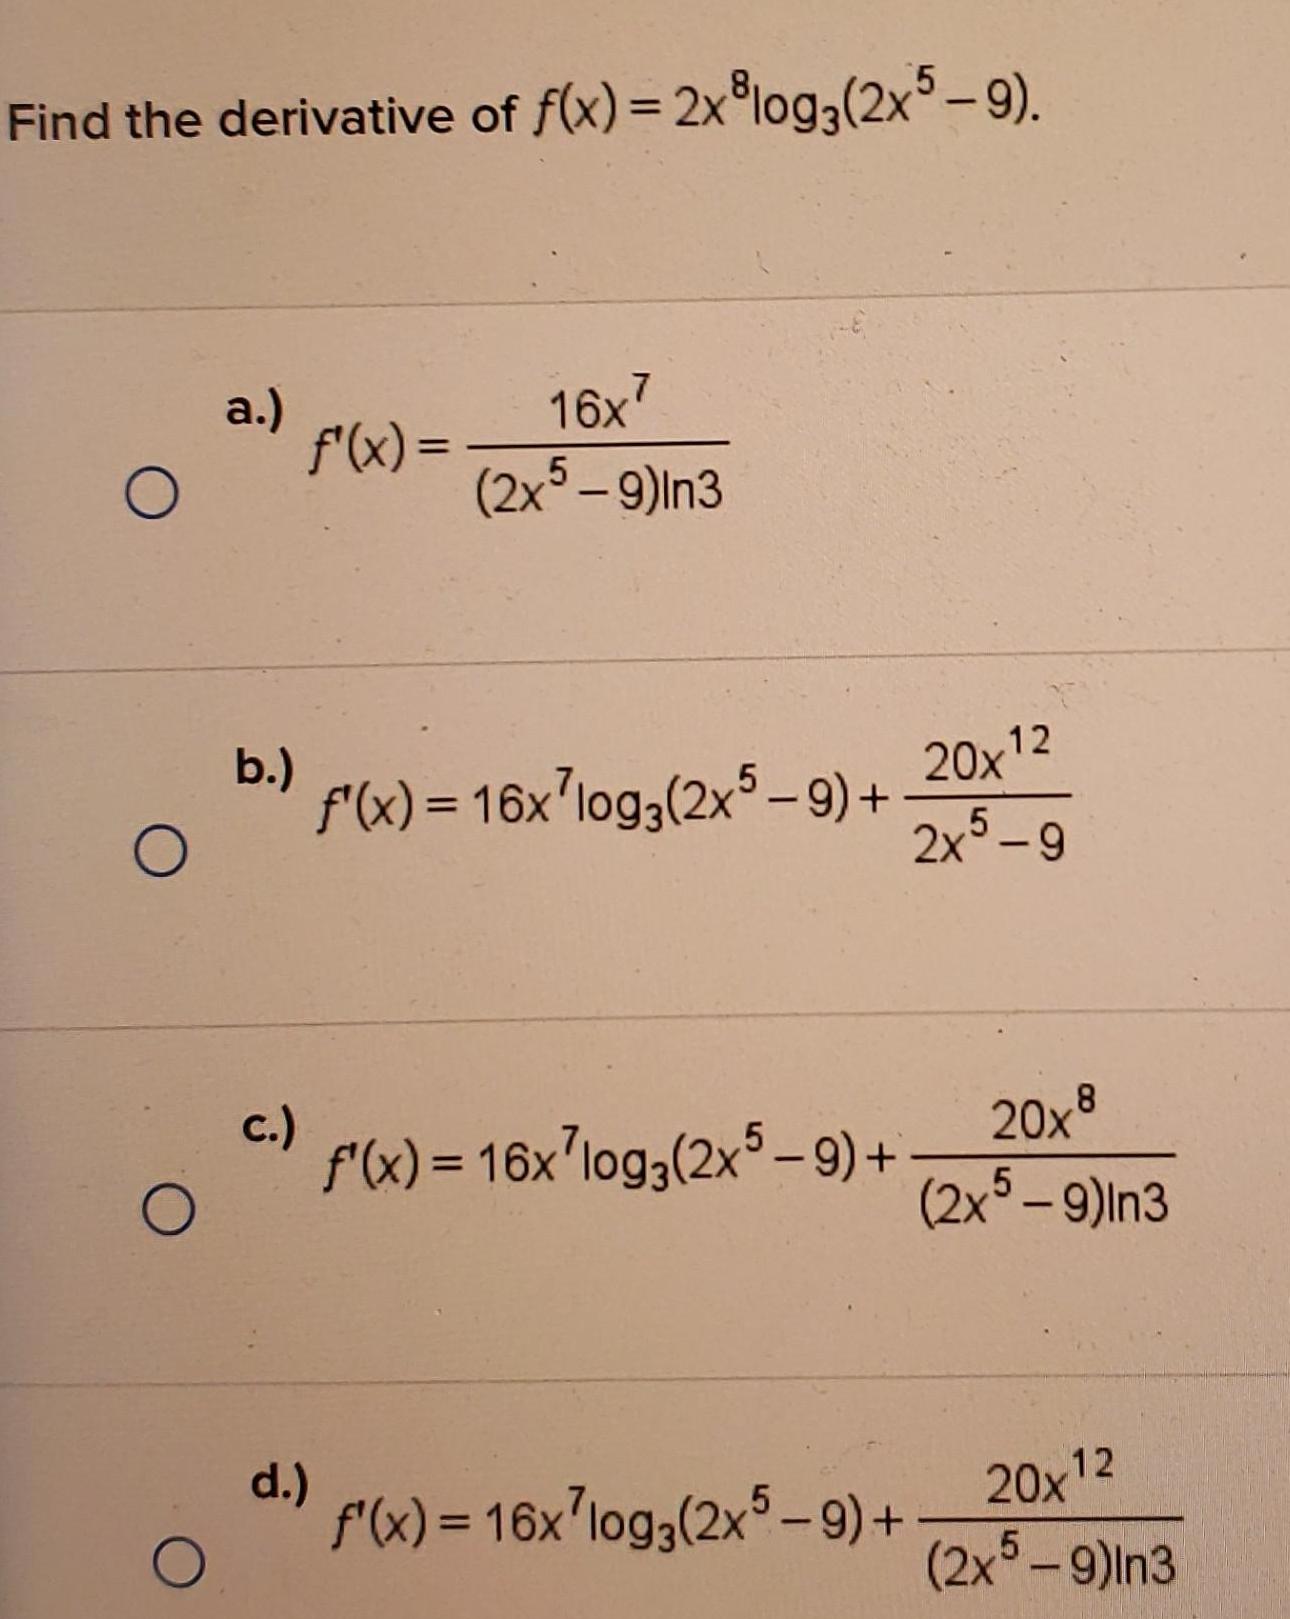 Find the derivative of f(x) = 2x⁸log₃(2x⁵ – 9).
a.) f'(x) = 16x⁷ / (2x⁵ – 9)ln3
b.) f'(x) = 16x⁷log₃(2x⁵ – 9) + 20x¹² / 2x⁵ – 9
c.) f'(x) = 16x⁷log₃(2x⁵ – 9) + 20x⁸ / (2x⁵ – 9)ln3
d.) f'(x) = 16x⁷log₃(2x⁵ – 9) + 20x¹² / (2x⁵ – 9)ln3